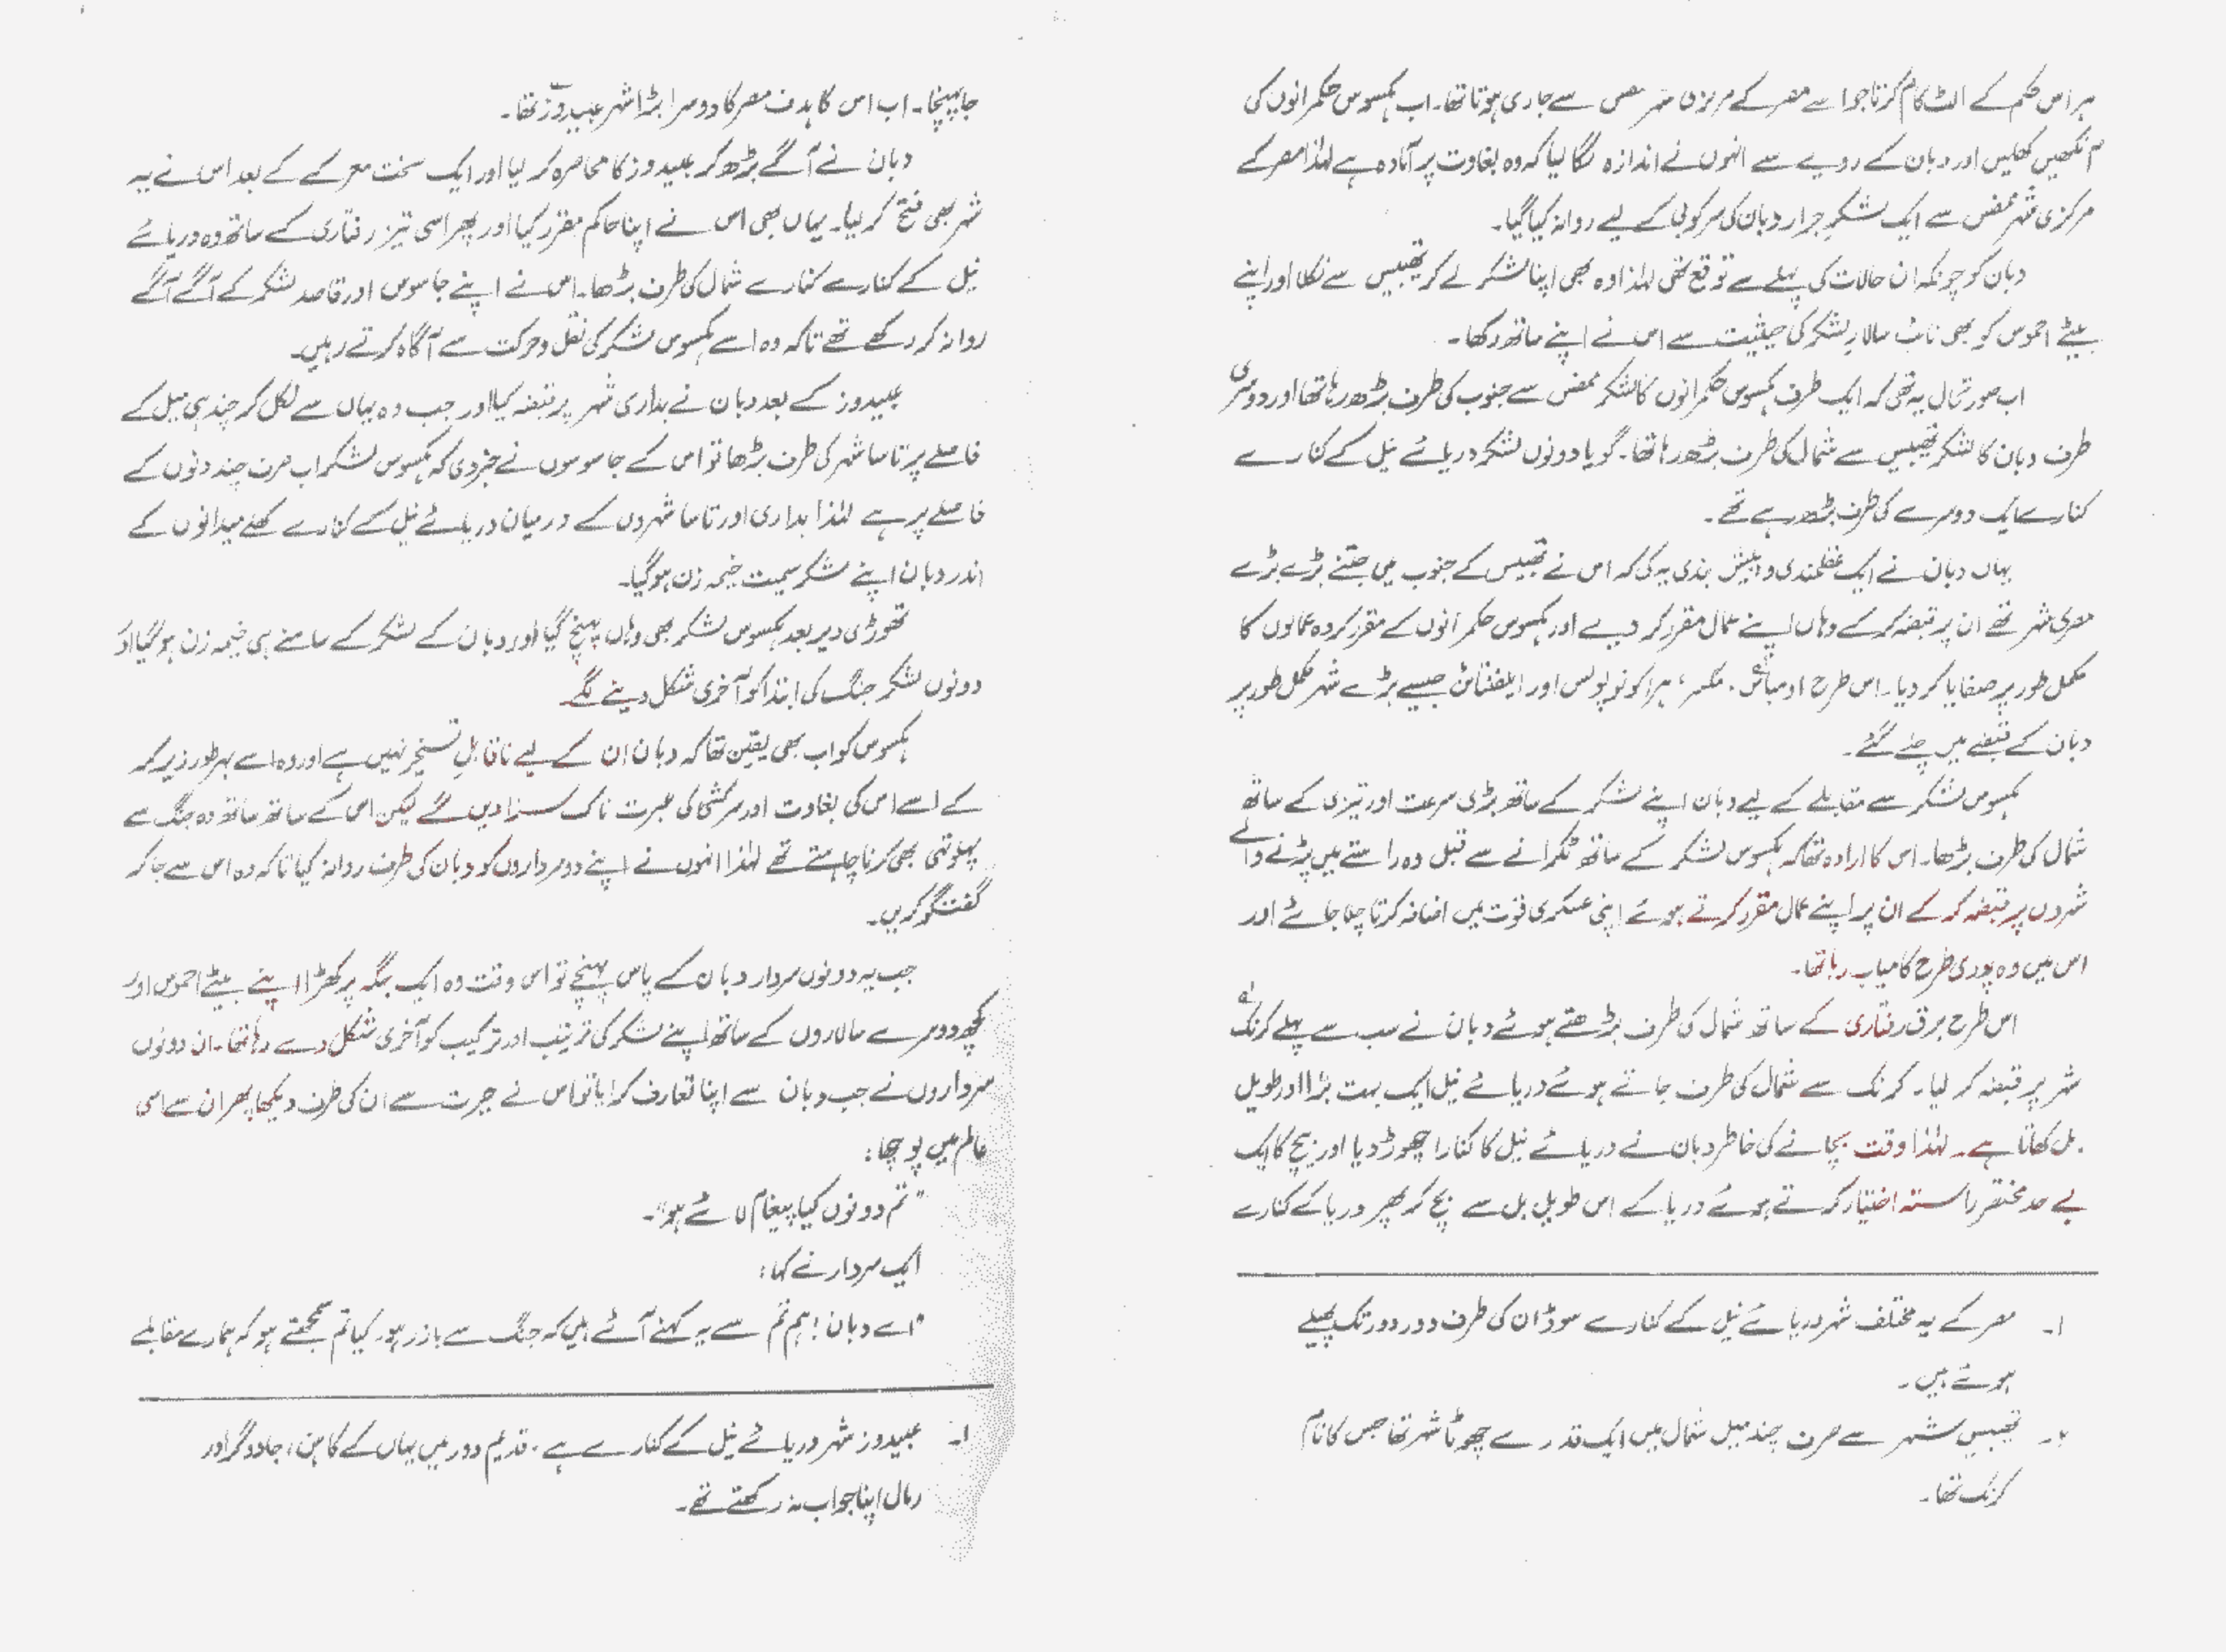 ہر اس حکم کے الٹ کام کرتا جو اسے مصر کے مرکزی شہر ممفس سے جاری ہوتا تھا۔ اب ہکسوس حکمرانوں کی
آنکھیں کھلیں اور دبان کے رویے سے انہوں نے اندازہ لگا لیا کہ وہ بغاوت پر آمادہ ہے لہٰذا مصر کے
مرکزی شہر ممفس سے ایک لشکرِ جرار دبان کی سرکوبی کے لیے روانہ کیا گیا۔
دبان کو چونکہ ان حالات کی پہلے سے توقع تھی لہٰذا وہ بھی اپنا لشکر لے کر تھیبس سے نکلا اور اپنے
بیٹے احموس کو بھی نائب سالارِ لشکر کی حیثیت سے اس نے اپنے ساتھ رکھا۔
اب صورتحال یہ تھی کہ ایک طرف ہکسوس حکمرانوں کا لشکر ممفس سے جنوب کی طرف بڑھ رہا تھا اور دوسری
طرف دبان کا لشکر تھیبس سے شمال کی طرف بڑھ رہا تھا۔ گویا دونوں لشکر دریائے نیل کے کنارے
کنارے ایک دوسرے کی طرف بڑھ رہے تھے۔
یہاں دبان نے ایک عقلمندی و پیش بندی یہ کی کہ اس نے تھیبس کے جنوب میں جتنے بڑے بڑے
مصری شہر تھے ان پر قبضہ کر کے وہاں اپنے عمال مقرر کر دیے اور ہکسوس حکمرانوں کے مقرر کردہ عمالوں کا
مکمل طور پر صفایا کر دیا۔ اس طرح ادمبائس، مکسر، ہراکونوپولس اور ایلفنٹائن جیسے بڑے شہر مکمل طور پر
دبان کے قبضے میں چلے گئے۔
ہکسوس لشکر سے مقابلے کے لیے دبان اپنے لشکر کے ساتھ بڑی سرعت اور تیزی کے ساتھ
شمال کی طرف بڑھا۔ اس کا ارادہ تھا کہ ہکسوس لشکر کے ساتھ ٹکرانے سے قبل وہ راستے میں پڑنے والے
شہروں پر قبضہ کر کے ان پر اپنے عمال مقرر کرتے ہوئے اپنی عسکری قوت میں اضافہ کرتا چلا جائے اور
اس میں وہ پوری طرح کامیاب رہا تھا۔
اس طرح برق رفتاری کے ساتھ شمال کی طرف بڑھتے ہوئے دبان نے سب سے پہلے کرنک
شہر پر قبضہ کر لیا۔ کرنک سے شمال کی طرف جاتے ہوئے دریائے نیل ایک بہت بڑا اور طویل
بل کھاتا ہے۔ لہٰذا وقت بچانے کی خاطر دبان نے دریائے نیل کا کنارا چھوڑ دیا اور بیچ کا ایک
بے حد مختصر راستہ اختیار کرتے ہوئے دریا کے اس طویل بل سے بچ کر پھر دریا کے کنارے
۱۔ مصر کے یہ مختلف شہر دریائے نیل کے کنارے سوڈان کی طرف دور دور تک پھیلے
ہوئے ہیں۔
۲۔ تھیبس شہر سے صرف چند میل شمال میں ایک قدرے چھوٹا شہر تھا جس کا نام
کرنک تھا۔
جا پہنچا۔ اب اس کا ہدف مصر کا دوسرا بڑا شہر عبیدوز تھا۔
دبان نے آگے بڑھ کر عبیدوز کا محاصرہ کر لیا اور ایک سخت معرکے کے بعد اس نے یہ
شہر بھی فتح کر لیا۔ یہاں بھی اس نے اپنا حاکم مقرر کیا اور پھر اسی تیز رفتاری کے ساتھ وہ دریائے
نیل کے کنارے کنارے شمال کی طرف بڑھا۔ اس نے اپنے جاسوس اور قاصد لشکر کے آگے آگے
روانہ کر رکھے تھے تاکہ وہ اسے ہکسوس لشکر کی نقل و حرکت سے آگاہ کرتے رہیں۔
عبیدوز کے بعد دبان نے بداری شہر پر قبضہ کیا اور جب وہ یہاں سے نکل کر چند ہی میل کے
فاصلے پر تاسا شہر کی طرف بڑھا تو اس کے جاسوسوں نے خبر دی کہ ہکسوس لشکر اب صرف چند دنوں کے
فاصلے پر ہے لہٰذا بداری اور تاسا شہروں کے درمیان دریائے نیل کے کنارے کھلے میدانوں کے
اندر دبان اپنے لشکر سمیت خیمہ زن ہو گیا۔
تھوڑی دیر بعد ہکسوس لشکر بھی وہاں پہنچ گیا اور دبان کے لشکر کے سامنے ہی خیمہ زن ہو گیا اور
دونوں لشکر جنگ کی ابتدا کو آخری شکل دینے لگے۔
ہکسوس کو اب بھی یقین تھا کہ دبان ان کے لیے ناقابلِ تسخیر نہیں ہے اور وہ اسے بہر طور زیر کر
کے اسے اس کی بغاوت اور سرکشی کی عبرت ناک سزا دیں گے لیکن اس کے ساتھ ساتھ وہ جنگ سے
پہلوتہی بھی کرنا چاہتے تھے لہٰذا انہوں نے اپنے دو سرداروں کو دبان کی طرف روانہ کیا تاکہ وہ اس سے جا کر
گفتگو کریں۔
جب یہ دونوں سردار دبان کے پاس پہنچے تو اس وقت وہ ایک جگہ پر کھڑا اپنے بیٹے احموس اور
کچھ دوسرے سالاروں کے ساتھ اپنے لشکر کی ترتیب اور ترکیب کو آخری شکل دے رہا تھا۔ ان دونوں
سرداروں نے جب دبان سے اپنا تعارف کرایا تو اس نے حیرت سے ان کی طرف دیکھا پھر ان سے اسی
عالم میں پوچھا:
"تم دونوں کیا پیغام لائے ہو"۔
ایک سردار نے کہا:
"اے دبان! ہم تم سے یہ کہنے آئے ہیں کہ جنگ سے باز رہو۔ کیا تم سمجھتے ہو کہ ہمارے مقابلے
۱۔ عبیدوز شہر دریائے نیل کے کنارے ہے۔ قدیم دور میں یہاں کے کاہن، جادوگر اور
رمال اپنا جواب نہ رکھتے تھے۔